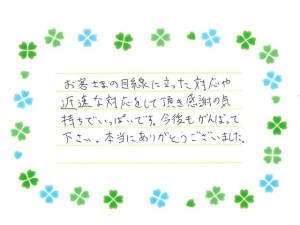 お客さまの目線に立った対応や
迅速な対応をして頂き感謝の気
持ちでいっぱいです。今後もがんばって
下さい。本当にありがとうございました。